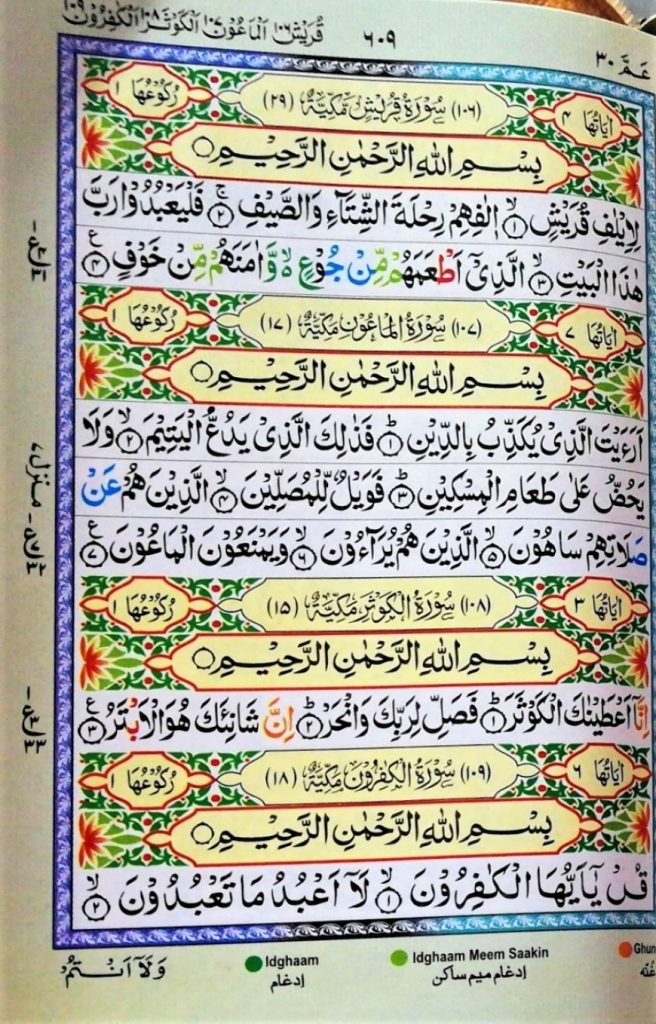 قُرَيْش ١٠٦ اَلْمَاعُوْن ١٠٧ اَلْكَوْثَر ١٠٨ اَلْكٰفِرُوْن ١٠٩
عَمَّ ٣٠
٦٠٩
اٰيَاتُهَا ٤ (١٠٦) سُوْرَةُ قُرَيْشٍ مَّكِّيَّةٌ (٢٩) رُكُوْعُهَا ١
بِسْمِ اللّٰهِ الرَّحْمٰنِ الرَّحِيْمِ ○
لِاِيْلٰفِ قُرَيْشٍ ۙ﴿١﴾ اٖلٰفِهِمْ رِحْلَةَ الشِّتَآءِ وَالصَّيْفِ ۚ﴿٢﴾ فَلْيَعْبُدُوْا رَبَّ
هٰذَا الْبَيْتِ ۙ﴿٣﴾ الَّذِيْٓ اَطْعَمَهُمْ مِّنْ جُوْعٍ ۙ۬ وَّاٰمَنَهُمْ مِّنْ خَوْفٍ ﴿٤﴾ ع
اٰيَاتُهَا ٧ (١٠٧) سُوْرَةُ الْمَاعُوْنِ مَكِّيَّةٌ (١٧) رُكُوْعُهَا ١
بِسْمِ اللّٰهِ الرَّحْمٰنِ الرَّحِيْمِ ○
اَرَءَيْتَ الَّذِيْ يُكَذِّبُ بِالدِّيْنِ ؕ﴿١﴾ فَذٰلِكَ الَّذِيْ يَدُعُّ الْيَتِيْمَ ۙ﴿٢﴾ وَلَا
يَحُضُّ عَلٰى طَعَامِ الْمِسْكِيْنِ ؕ﴿٣﴾ فَوَيْلٌ لِّلْمُصَلِّيْنَ ۙ﴿٤﴾ الَّذِيْنَ هُمْ عَنْ
صَلَاتِهِمْ سَاهُوْنَ ۙ﴿٥﴾ الَّذِيْنَ هُمْ يُرَآءُوْنَ ۙ﴿٦﴾ وَيَمْنَعُوْنَ الْمَاعُوْنَ ﴿٧﴾ ع
اٰيَاتُهَا ٣ (١٠٨) سُوْرَةُ الْكَوْثَرِ مَكِّيَّةٌ (١٥) رُكُوْعُهَا ١
بِسْمِ اللّٰهِ الرَّحْمٰنِ الرَّحِيْمِ ○
اِنَّآ اَعْطَيْنٰكَ الْكَوْثَرَ ؕ﴿١﴾ فَصَلِّ لِرَبِّكَ وَانْحَرْ ؕ﴿٢﴾ اِنَّ شَانِئَكَ هُوَ الْاَبْتَرُ ﴿٣﴾ ع
اٰيَاتُهَا ٦ (١٠٩) سُوْرَةُ الْكٰفِرُوْنَ مَكِّيَّةٌ (١٨) رُكُوْعُهَا ١
بِسْمِ اللّٰهِ الرَّحْمٰنِ الرَّحِيْمِ ○
قُلْ يٰٓاَيُّهَا الْكٰفِرُوْنَ ۙ﴿١﴾ لَآ اَعْبُدُ مَا تَعْبُدُوْنَ ۙ﴿٢﴾
منزل ٧
وَلَآ اَنْتُمْ
Idghaam
ادغام
Idghaam Meem Saakin
ادغام میم ساکن
Ghun
غُنّه